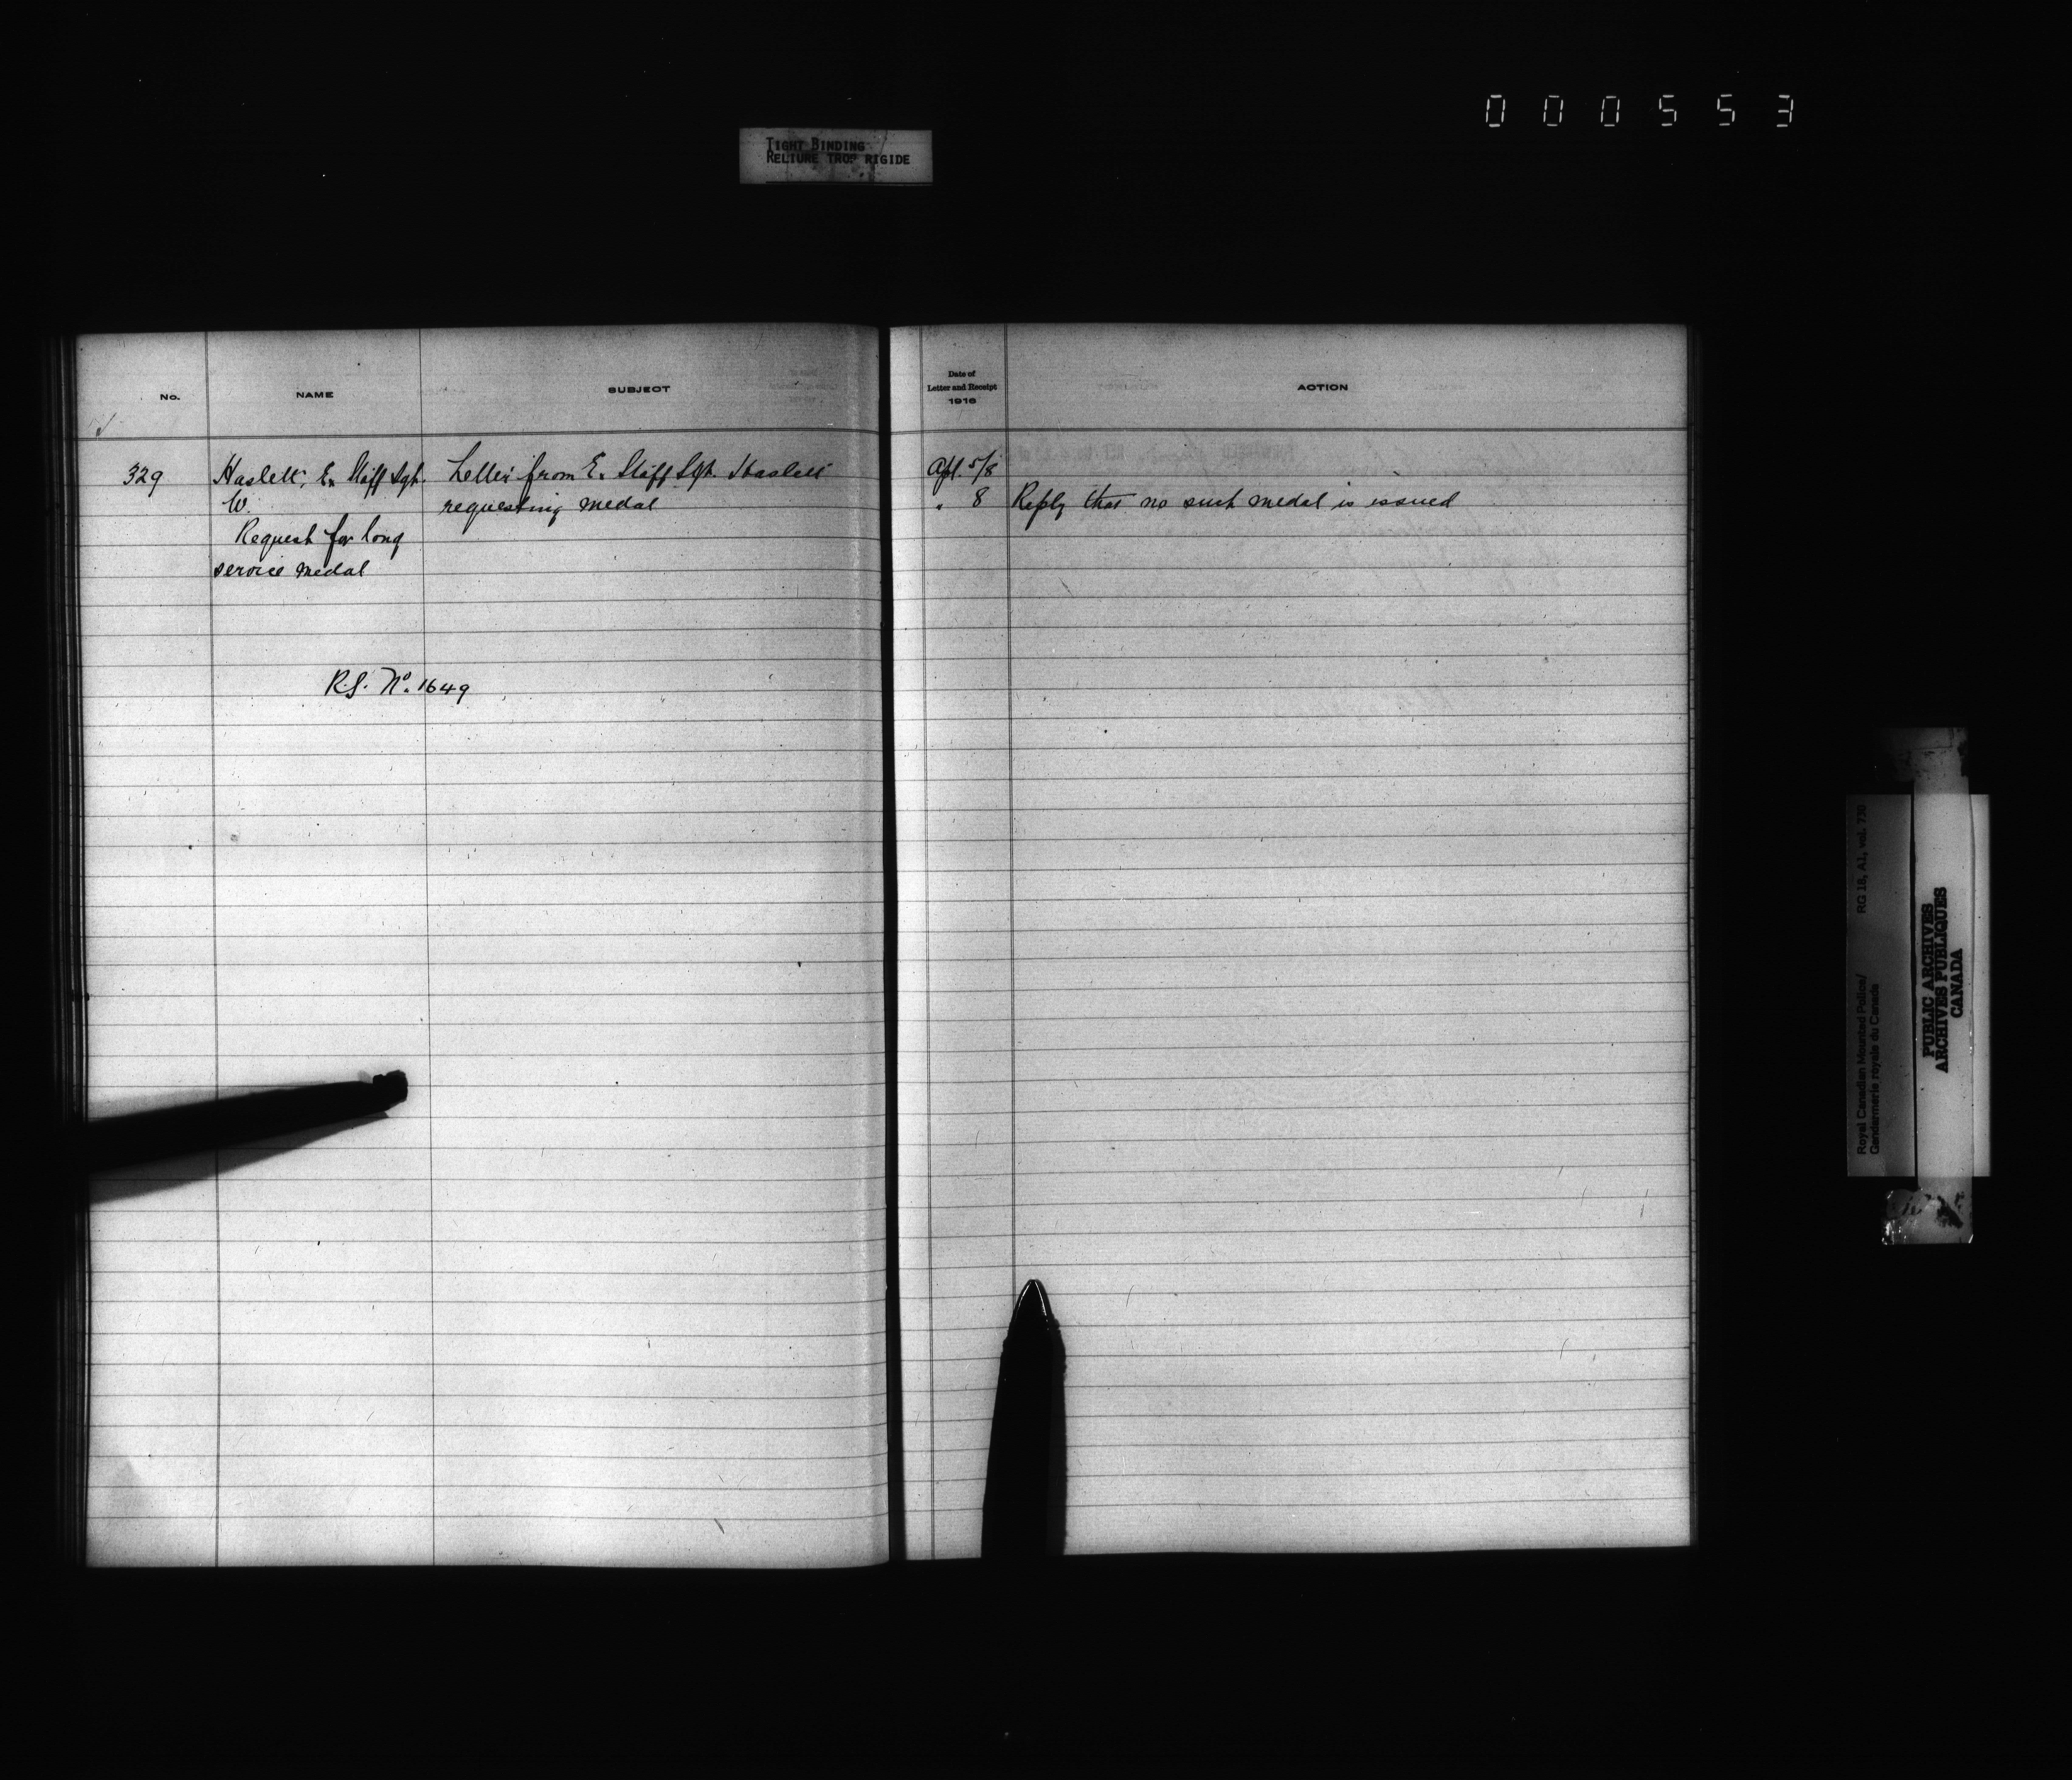 000553
TIGHT BINDING
RELIURE TROP RIGIDE
No.
NAME
SUBJECT
329
Haslett, Ex Staff Sgt.
W.
Request for long
service medal
Letter from Ex Staff Sgt. Haslett
requesting medal
R.S. No. 1649
Date of
Letter and Receipt
1916
ACTION
Apl. 5/8
" 8
Reply that no such medal is issued
Royal Canadian Mounted Police/
Gendarmerie royale du Canada
RG 18, A1, vol. 730
PUBLIC ARCHIVES
ARCHIVES PUBLIQUES
CANADA